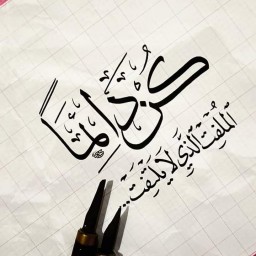 كُن دَائِماً
المُلفِت الَّذِي لا يَلتَفِت..